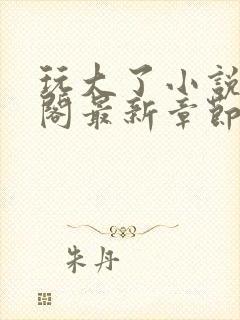 玩大了小說
閣最新章節
朱丹